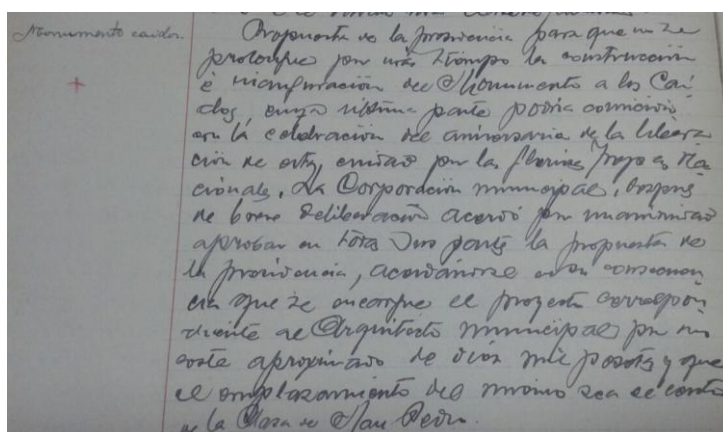 Monumento caidos.
Propuesta de la presidencia para que no se
prolongue por más tiempo la construcción
é inauguración del Monumento a los Cai-
dos, cuya última parte podria coincidir
con la celebración del aniversario de la libera
ción de esta ciudad por las gloriosas tropas Na
cionales. La Corporación municipal, despues
de breve deliberación acordó por unanimidad
aprobar en todas sus partes la propuesta de
la presidencia, acordándose en su consecuen
cia que se encargue el proyecto correspon
diente al Arquitecto municipal por un
coste aproximado de diez mil pesetas y que
el emplazamiento del mismo sea el centro
de la Plaza de San Pedro.